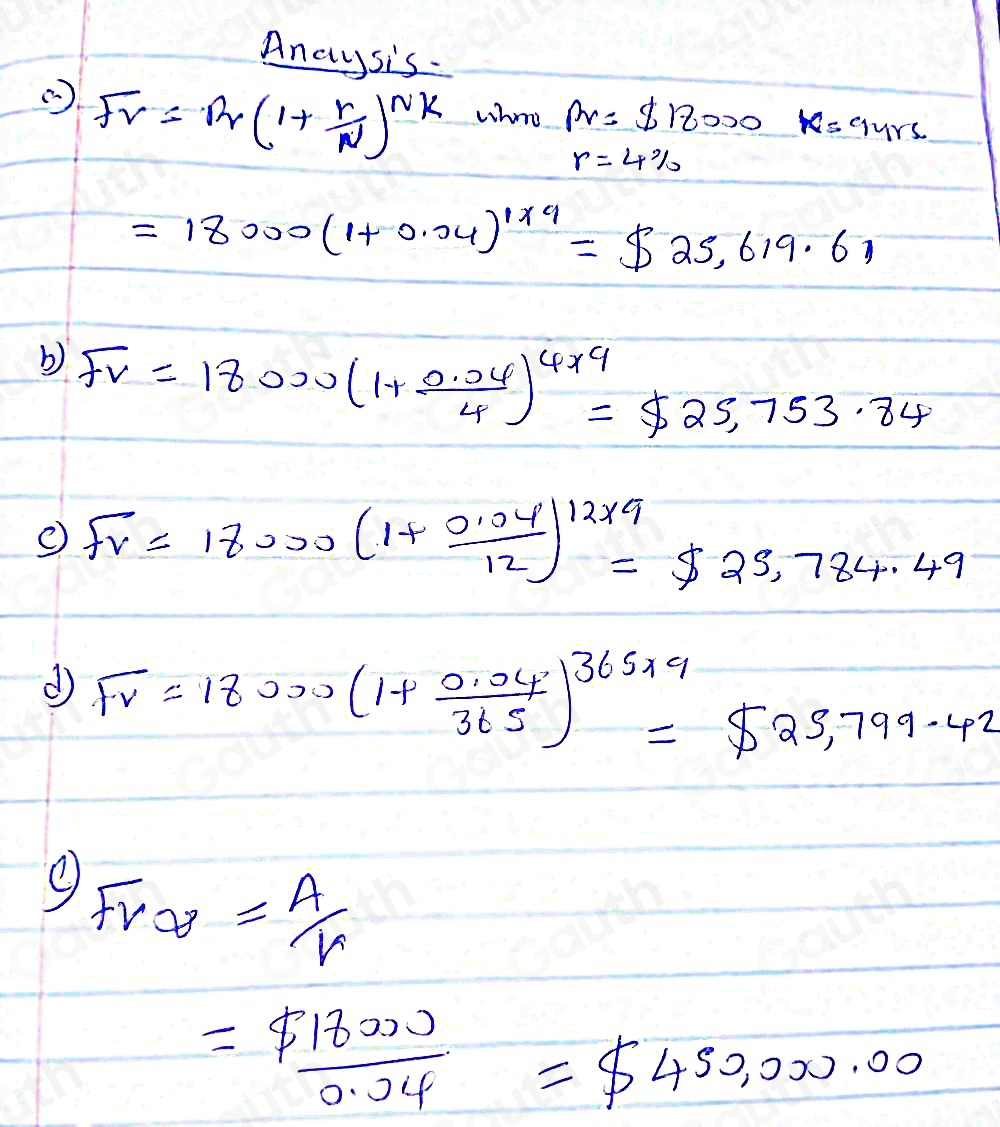 Anaysis-
a) Fv = Pv(1+ r/N)^NK where Pv= $18000 K=9yrs
r=4%
= 18000(1+0.04)^1x9 = $25,619.61
b) Fv = 18000(1+ 0.04/4)^4x9 = $25,753.84
c) Fv = 18000(1+ 0.04/12)^12x9 = $25,784.49
d) Fv = 18000(1+ 0.04/365)^365x9 = $25,799.42
e) Fv∞ = A/r
= $18000/0.04 = $450,000.00